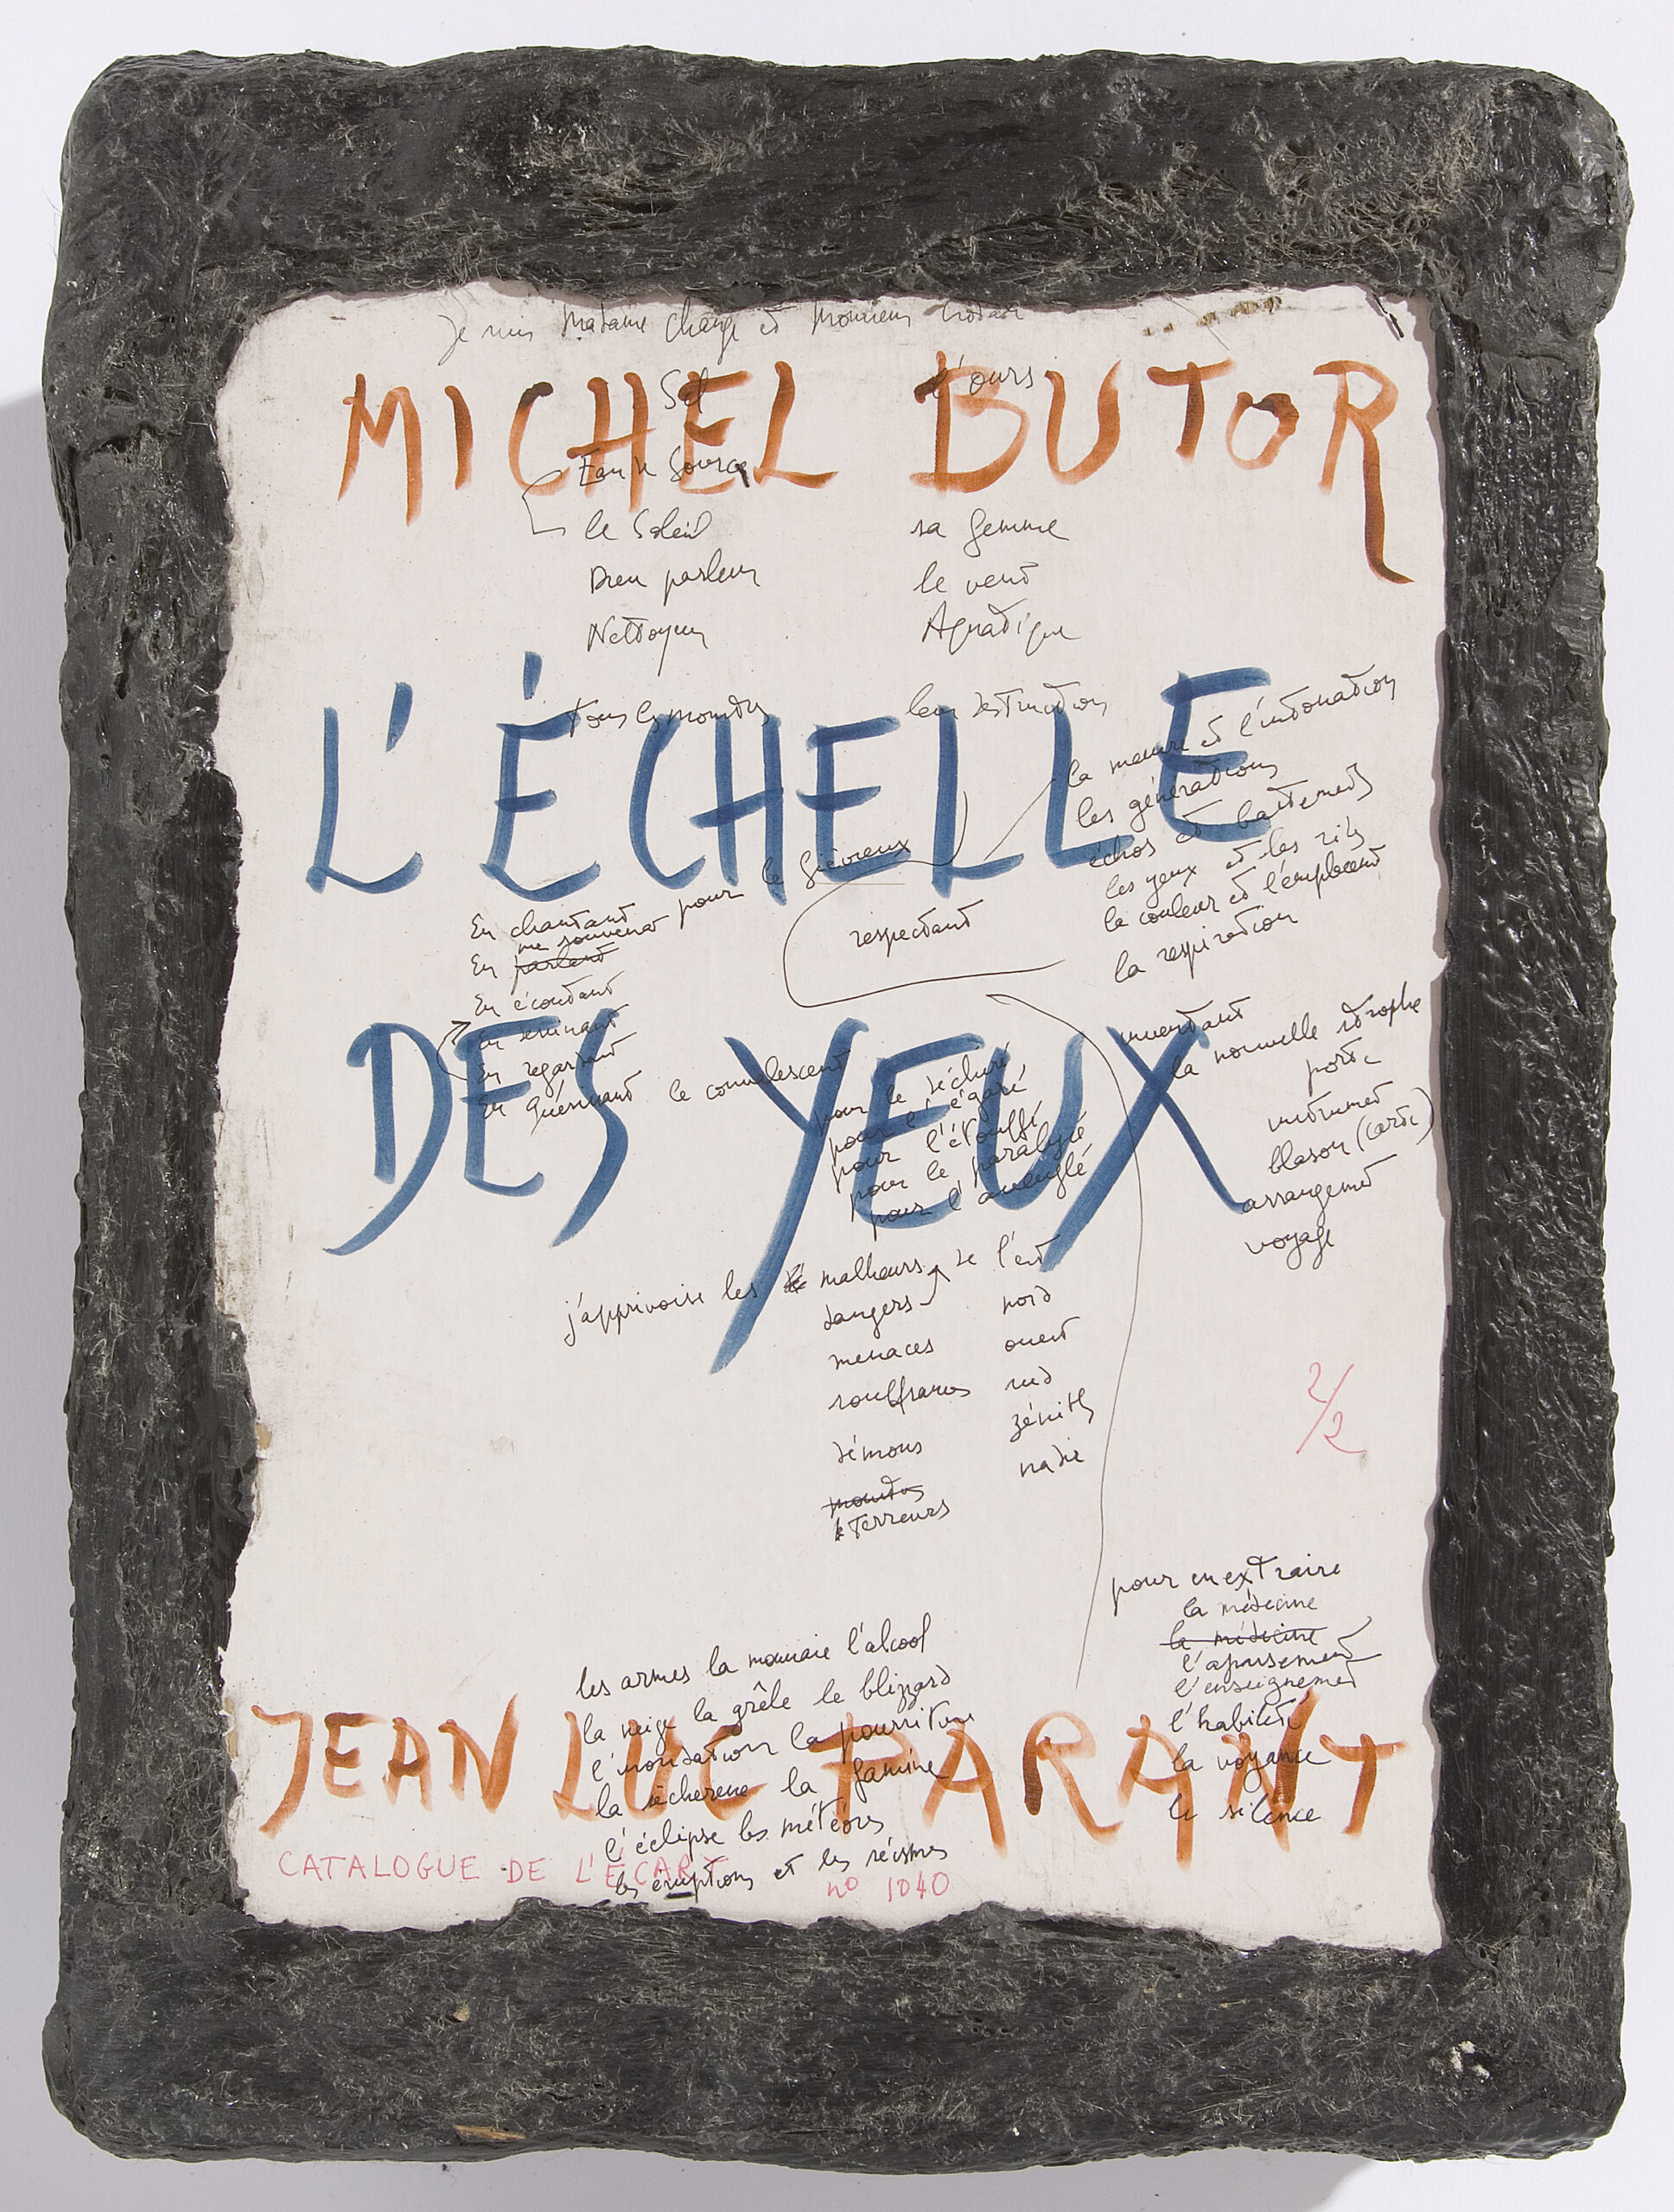 Je suis Madame change et Monsieur
MICHEL BUTOR
Sel l'ours
Eau de Source
le Soleil sa femme
Dieu parleur le vent
Nettoyeur Aquatique
tous les mondes leur destruction
L'ÉCHELLE
la mesure et l'intonation
les générations
échos et battements
les yeux et les cils
la couleur et l'emplacement
la respiration
En chantant pour le fiévreux
me souvenant
En parlant
respectant
En écoutant
En dessinant
En regardant
En guérissant le convalescent
DES YEUX
pour le
pour l'égaré
pour l'étouffé
pour le paralysé
pour l'aveuglé
inventant
la nouvelle strophe
porte
instrument
blason (carte)
arrangement
voyage
j'apprivoise les malheurs de l'est
dangers nord
menaces ouest
souffrances sud
démons zénith
mondes nadir
terreurs
2/2
pour en extraire
la médecine
la médecine
l'apaisement
l'enseignement
l'habileté
la voyance
le silence
les armes la monnaie l'alcool
la neige la grêle le blizzard
l'inondation la pourriture
la sécheresse la famine
l'éclipse les météores
les éruptions et les séismes
JEAN LUC PARANT
CATALOGUE DE L'ÉCART no 1040